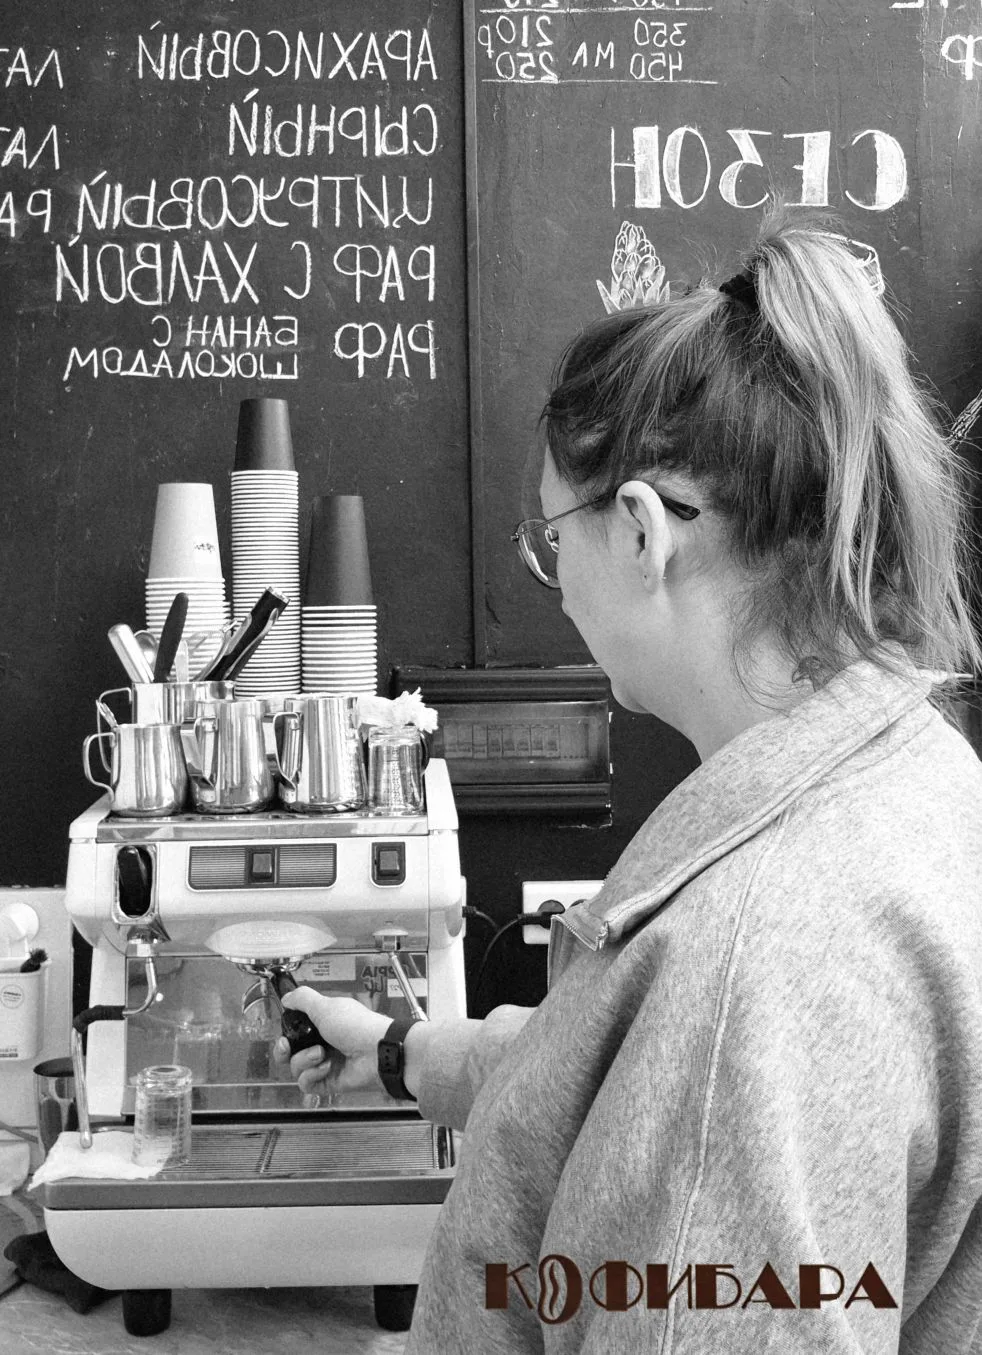 АРАХИСОВЫЙ
ЛАТ
СЫРНЫЙ
ЛАТ
ЦИТРУСОВЫЙ РА
РАФ С ХАЛВОЙ
РАФ БАНАН С
ШОКОЛАДОМ
210р
250
350
450 МЛ
СЕЗОН
Ф
КОФИБАРА